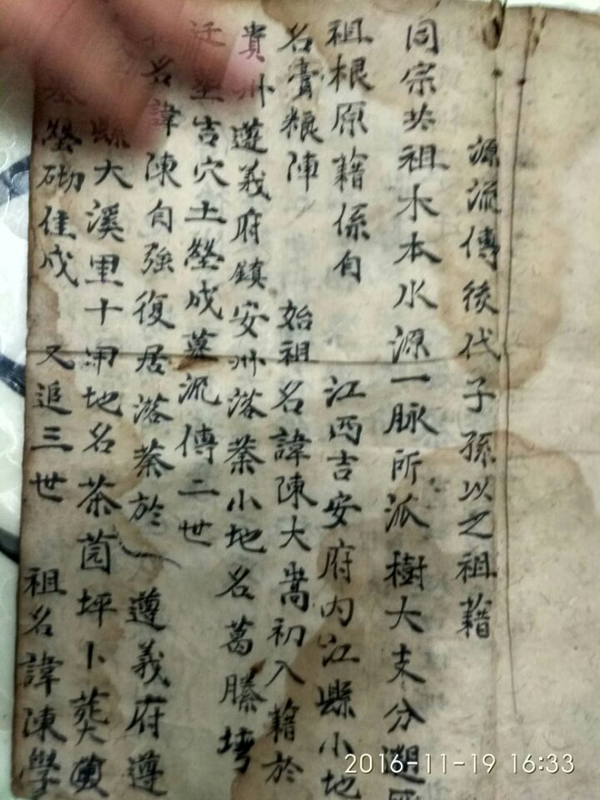 源流傳後代子孫以之祖籍
同宗共祖木本水源一脉所派樹大支分
祖根原籍係自 江西吉安府内江縣小地
名賣粮陣 始祖名諱陳大嵩初入籍於
貴州遵義府鎮安州落業小地名葛藤塆
迁 吉穴土塋成墓流傳二世
名諱陳自強復居落業於 遵義府遵
縣大溪里十甲地名茶园坪卜葬
塋砌佳成 又追三世 祖名諱陳學
2016-11-19 16:33